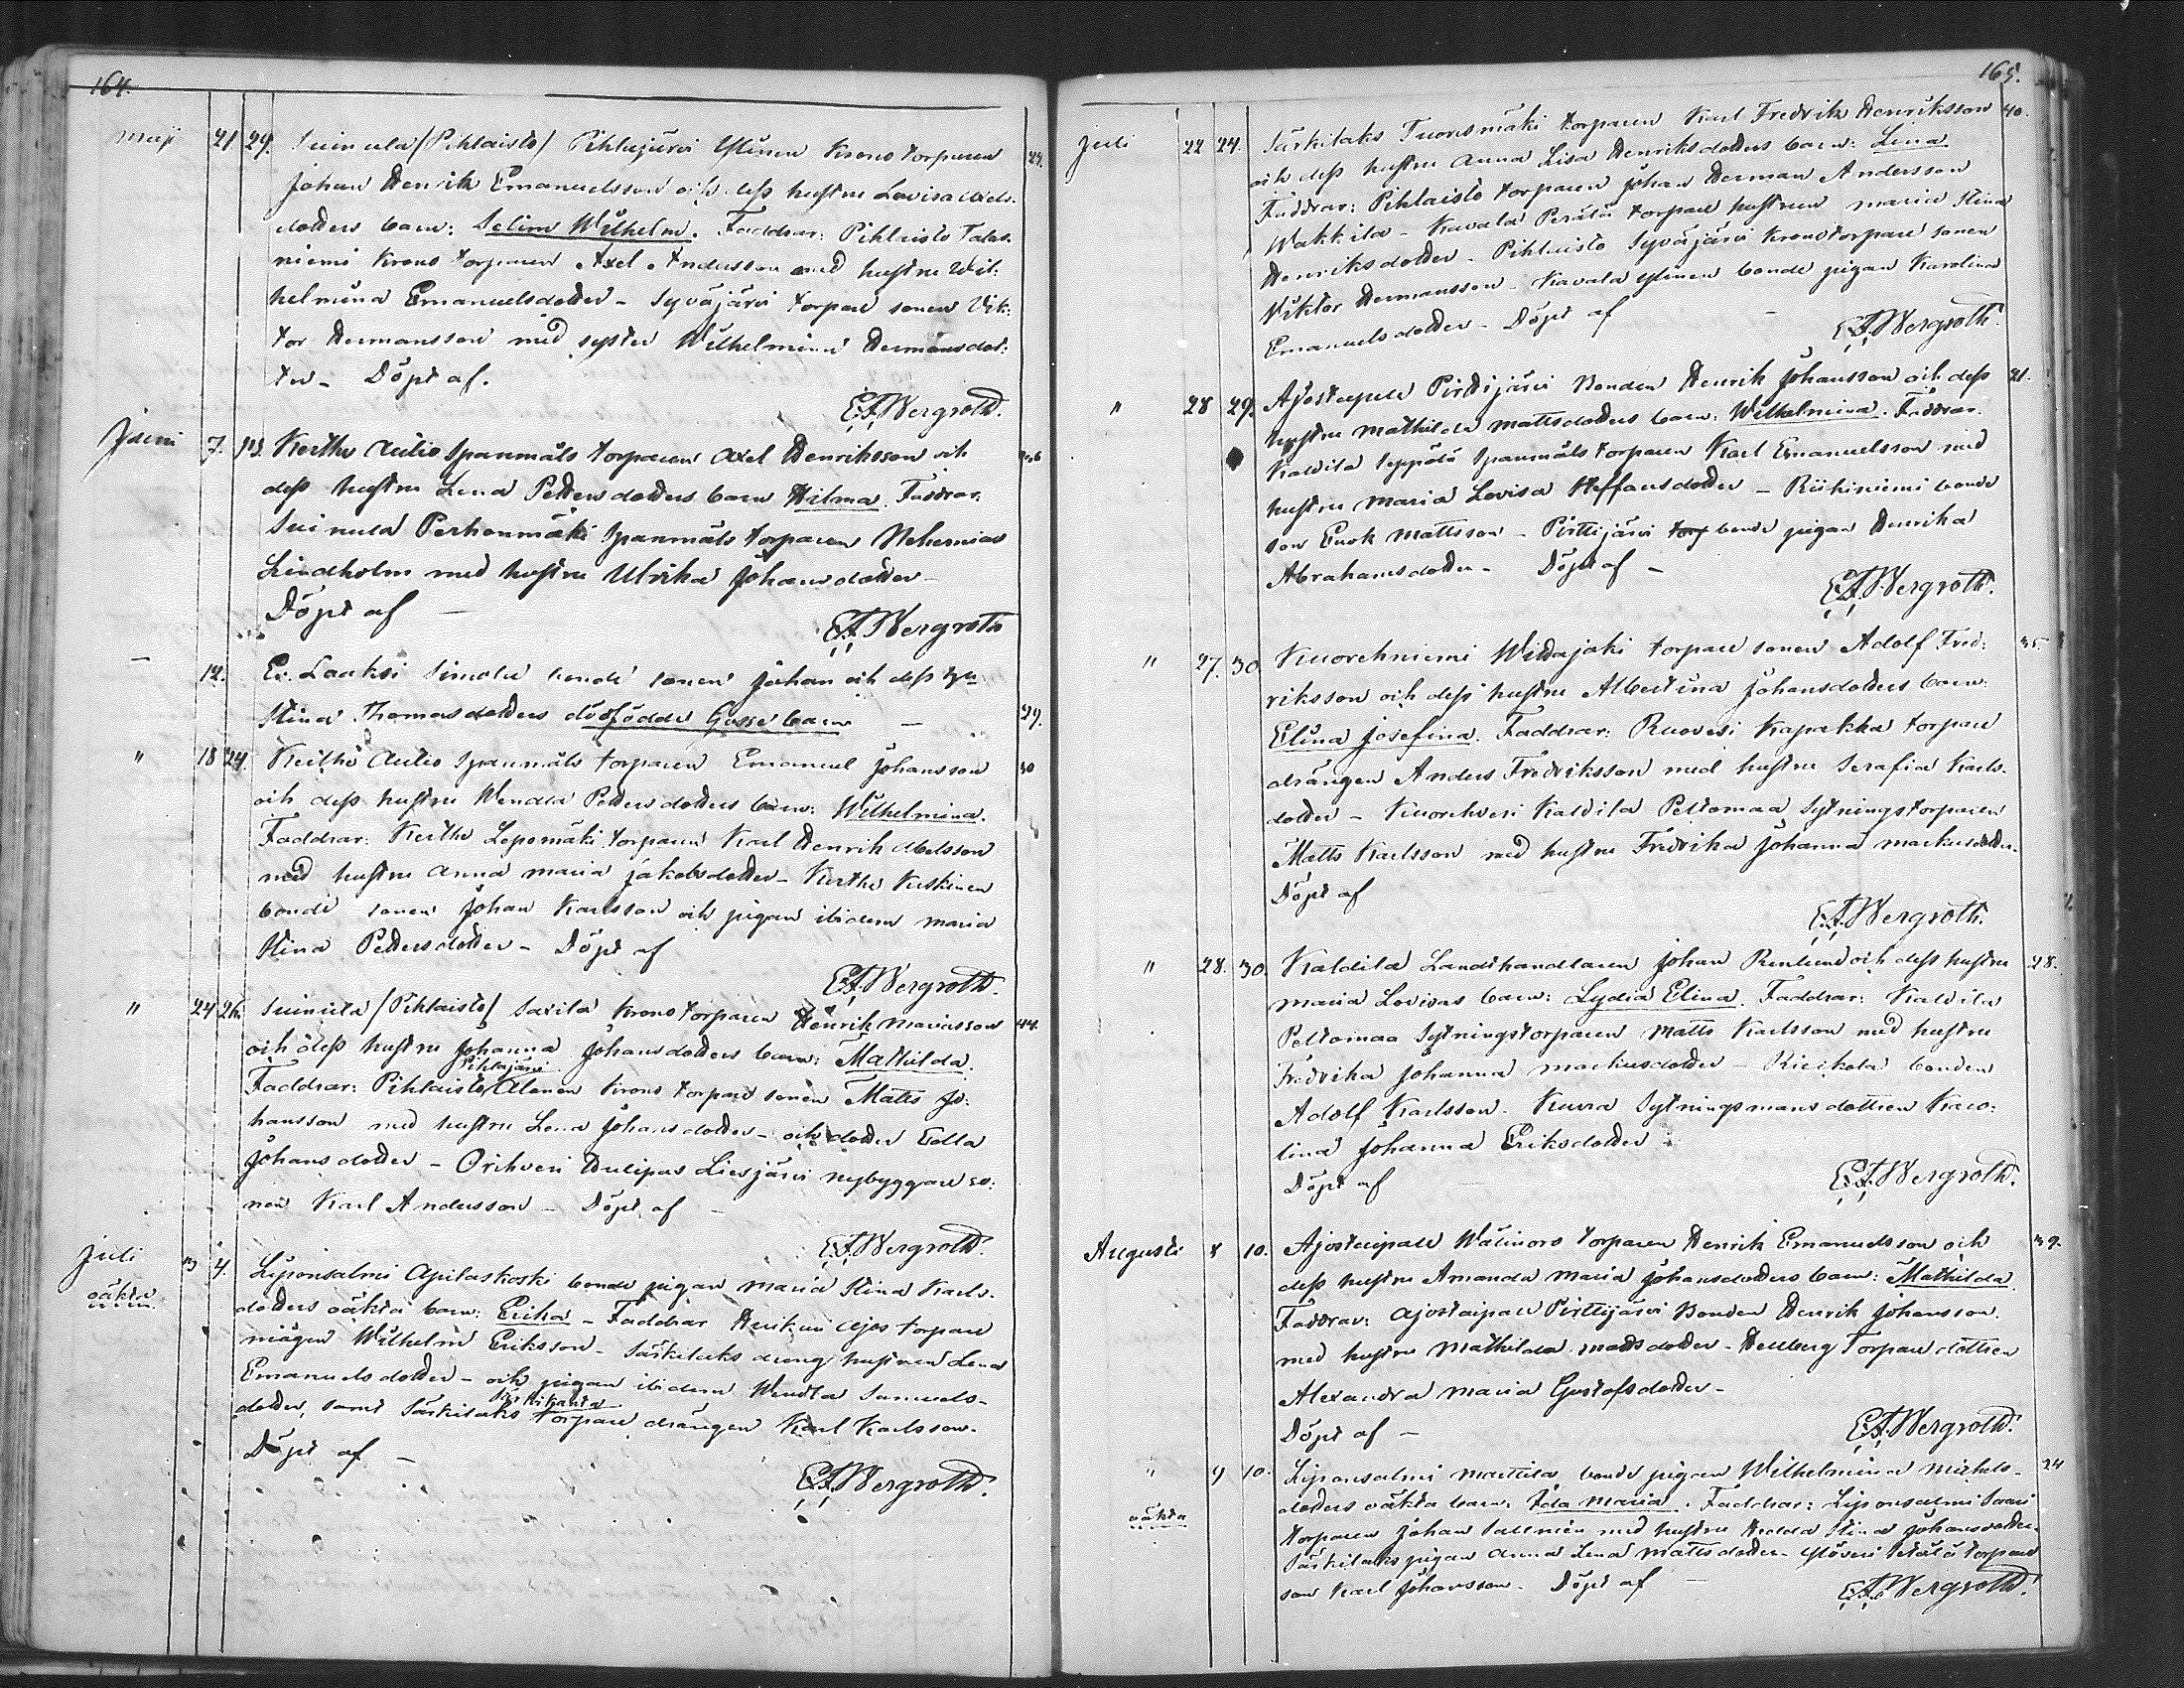 164.
Maji 21 29. Suinula /Pihlaisto/ Pihlajärvi Yлinen Krono torparen 24.
Johan Henrik Emanuelsson och dess hustru Lovisa
dotters barn: Selim Wilhelm. Faddrar: Pihlaisto Talas-
niemi Krono torparen Axel Andersson med hustru Wil:
helmina Emanuelsdotter - Syväjärvi torpare sonen Vik:
tor Hermansson med syster Wilhelmina Hermansdot:
ter - Döpt af.
E.F. Wergroth.
Juni 7. 13. Kerthe Aulio Spanmåls torparen Axel Henriksson och
dess hustru Lena Pettersdotters barn Hilma. Faddrar:
Suinula Perhonmäki Spanmåls torparen Nehemias
Lindholm med hustru Ulrika Johansdotter -
Döpt af -
E.F. Wergroth
- 12. Er. Laaksi Simola bonde sonen Johan och dess
Stina Thomasdotters dödfödde Gosse barn - 29.
" 18 24. Kerthe Aulio Spanmåls torparen Emanuel Johansson 30
och dess hustru Wendla Pettersdotters barn: Wilhelmina.
Faddrar: Kerthe Lepomäki torparen Karl Henrik Abelsson
med hustru Anna Maria Jakobsdotter - Kerthe Keskinen
bonde sonen Johan Karlsson och pigan ibidem Maria
Stina Pettersdotter - Döpt af
E.F. Wergroth.
" 24 26. Suinula /Pihlaisto/ Saxila Krono torparen Henrik Mariasson 44.
och dess hustru Johanna Johansdotters barn: Mathilda.
Pihlajärvi
Faddrar: Pihlaisto, Alanen Krono torpare sonen Matts Jo:
hansson med hustru Lena Johansdotter - och dotter Edla
Johansdotter - Orihvesi Hulipas Liesjärvi nybyggare so:
nen Karl Andersson - Döpt af -
E.F. Wergroth.
Juli 3 4. Liponsalmi Apilaskoski bonde pigan Maria Stina Karls-
oäkta
dotters oäkta barn: Erika - Faddrar Heikius Ajos torpare
mågen Wilhelm Eriksson - Särkilaks dreng hustrun Lena
Emanuelsdotter - och pigan ibidem Wendla Samuels-
Särkikanta
dotter, samt Särkilaks torpare drängen Karl Karlsson.
Döpt af -
E.F. Wergroth.
165.
Juli 22 24. Särkilaks Tuoresmäki torparen Karl Fredrik Henriksson 40.
och dess hustru Anna Lisa Henriksdotters barn: Lina
Faddrar: Pihlaisto torparen Johan Herman Andersson
Wakkila - Kavala Perälä torpare hustrun Maria Stina
Henriksdotter - Pihlaisto Syväjärvi Kronotorpare sonen
Viktor Hermansson - Kavala Ylinen bonde pigan Karolina
Emanuelsdotter - Döpt af -
E.F. Wergroth.
" 28 29. Ajostaipale Pirttijärvi Bonden Henrik Johansson och dess 21.
hustru Mathilda Mattsdotters barn: Wilhelmina. Faddrar.
Kaldila Seppälä Spanmåls torparen Karl Emanuelsson med
hustru Maria Lovisa Steffansdotter - Riihiniemi bonde
son Enok Mattsson - Pirttijärvi torp bonde pigan Henrika
Abrahamsdotter - Döpt af -
E.F. Wergroth.
" 27. 30 Kuorehniemi Wiitajoki torpare sonen Adolf Fred: 35.
riksson och dess hustru Albertina Johansdotters barn:
Elina Josefina. Faddrar: Ruovesi Kapakka torpare
drängen Anders Fredriksson med hustru Serafia Karls-
dotter - Kuorehvesi Kaldila Peltomaa Sytningstorparen
Matts Karlsson med hustru Fredrika Johanna Markusdotter.
Döpt af
E.F. Wergroth.
" 28. 30. Kaldila Landthandlaren Johan Renlund och dess hustru 28.
Maria Lovisas barn: Lydia Elina. Faddrar: Kaldila
Peltomaa Sytningstorparen Matts Karlsson med hustru
Fredrika Johanna Markusdotter - Riekola bonden
Adolf Karlsson. Kuora Sytningsmans dottren Karo:
lina Johanna Eriksdotter -
Döpt af
E.F. Wergroth.
Augusti 8 10. Ajostaipale Wälimoro torparen Henrik Emanuelsson och 39.
dess hustru Amanda Maria Johansdotters barn: Mathilda.
Faddrar: Ajostaipale Pirttijärvi Bonden Henrik Johansson.
med hustru Mathilda Mattsdotter - Hellberg Torpare dottren
Alexandra Maria Gustafsdotter -
Döpt af -
E.F. Wergroth.
" 9 10. Liponsalmi Mattila bonde pigan Wilhelmina Michels- 24
oäkta
dotters oäkta barn: Ida Maria. Faddrar: Liponsalmi Saari
torparen Johan Sallinen med hustru Hedda Stina Johansdotter.
Särkilaks pigan Anna Lena Mattsdotter - Ylövesi Perälä torpare
son Karl Johansson. Döpt af -
E.F. Wergroth.